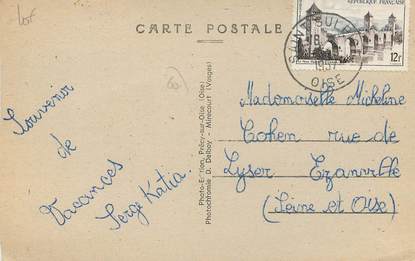 CARTE POSTALE
RÉPUBLIQUE FRANÇAISE
12F
OISE
1957
Souvenir
de
Vacances
Serge Katia.
Photo-Edition, Précy-sur-Oise (Oise)
Photochromie D. Delboy - Mirecourt (Vosges)
Mademoiselle Micheline
Cohen rue de
Lyser Ezanville
(Seine et Oise)